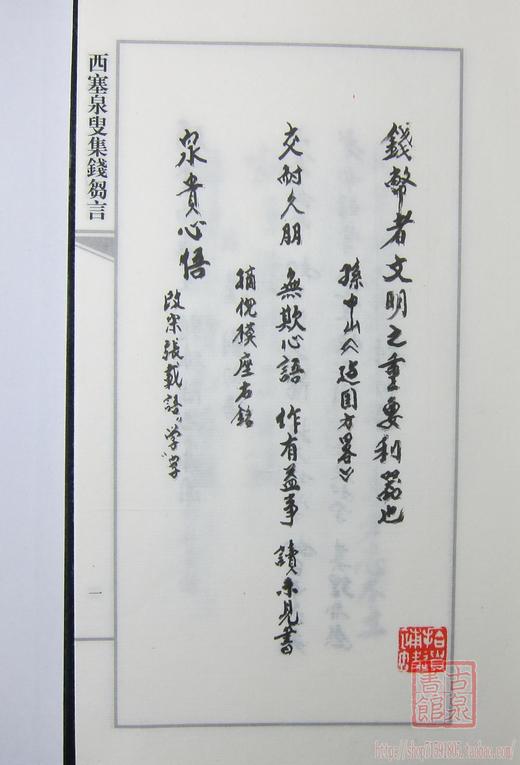 錢幣者文明之重要利器也
孫中山《建国方畧》
交耐久朋 無欺心語 作有益事 讀未見書
摘倪模座右銘
泉貴心悟
改宋張載語“学”字
西塞泉叟集錢芻言
一
古泉書館